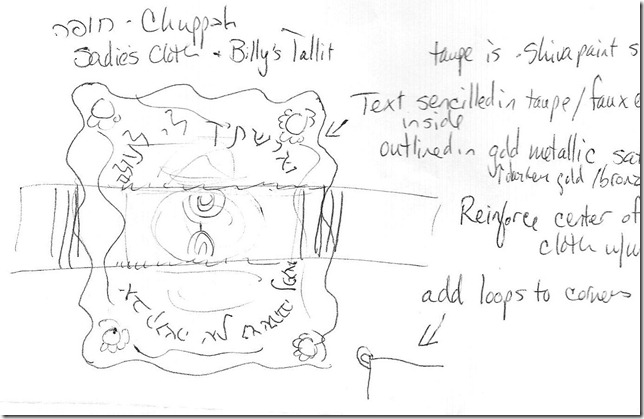 חופה - Chuppah
Sadie's Cloth + Billy's Tallit
taupe is - Shiva paint s
Text sencilled in taupe/faux
inside
outlined in gold metallic
darken gold/bronz
Reinforce center of
cloth w/
add loops to corners
וארשתיך לי לעולם